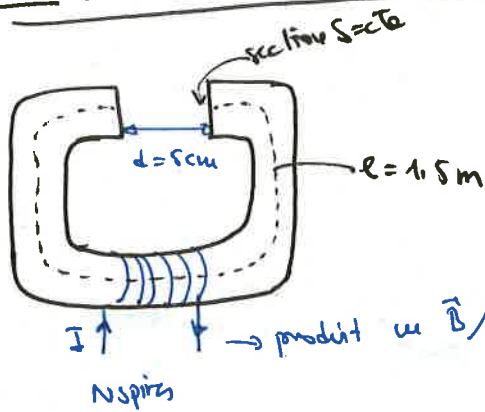 section S=cte
d=5cm
l=1,5m
I
→ produit un B⃗
N spires